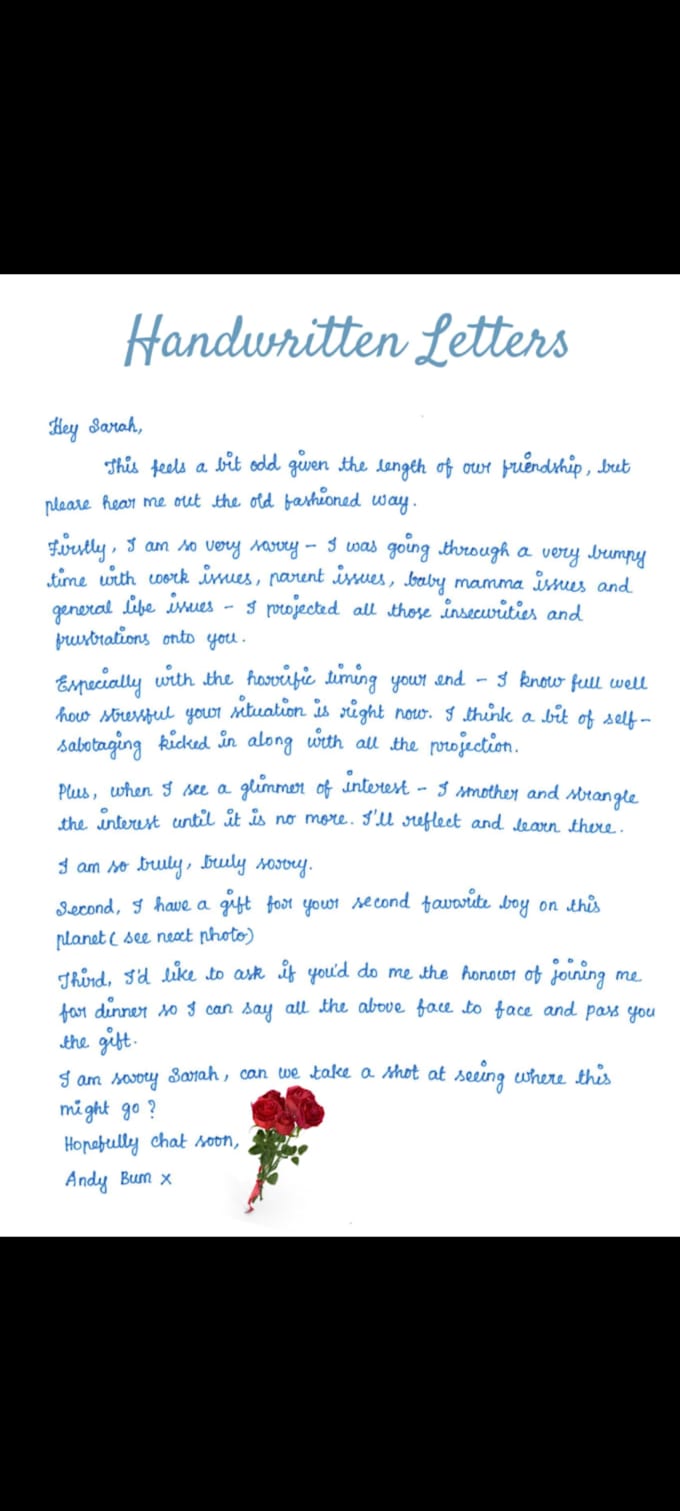 Handwritten Letters
Hey Sarah,
This feels a bit odd given the length of our friendship, but
please hear me out the old fashioned way.
Firstly, I am so very sorry - I was going through a very bumpy
time with work issues, parent issues, baby mamma issues and
general life issues - I projected all those insecurities and
frustrations onto you.
Especially with the horrific timing your end - I know full well
how stressful your situation is right now. I think a bit of self-
sabotaging kicked in along with all the projection.
Plus, when I see a glimmer of interest - I smother and strangle
the interest until it is no more. I'll reflect and learn there.
I am so truly, truly sorry.
Second, I have a gift for your second favourite boy on this
planet ( see next photo)
Third, I'd like to ask if you'd do me the honour of joining me
for dinner so I can say all the above face to face and pass you
the gift.
I am sorry Sarah, can we take a shot at seeing where this
might go ?
Hopefully chat soon,
Andy Bum x